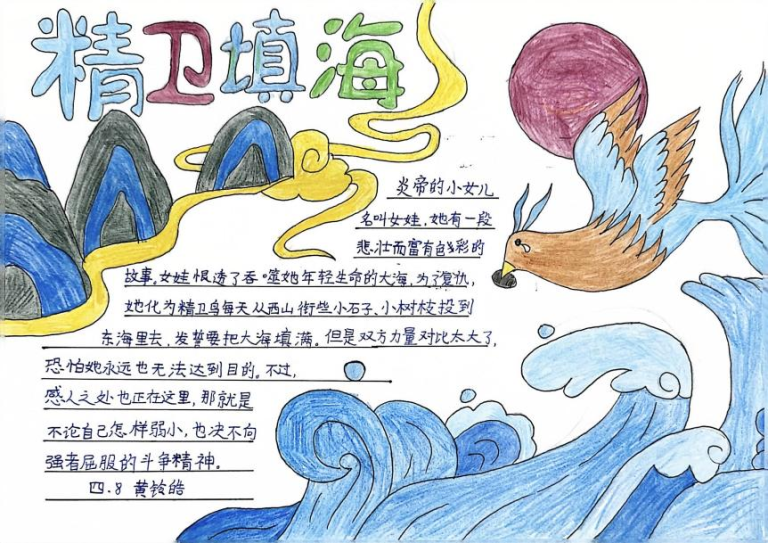 精卫填海
炎帝的小女儿
名叫女娃,她有一段
悲壮而富有色彩的
故事,女娃恨透了吞噬她年轻生命的大海,为了复仇,
她化为精卫鸟每天从西山衔些小石子、小树枝投到
东海里去,发誓要把大海填满。但是双方力量对比太大了,
恐怕她永远也无法达到目的。不过,
感人之处也正在这里,那就是
不论自己怎样弱小,也决不向
强者屈服的斗争精神。
四.8 黄铃皓